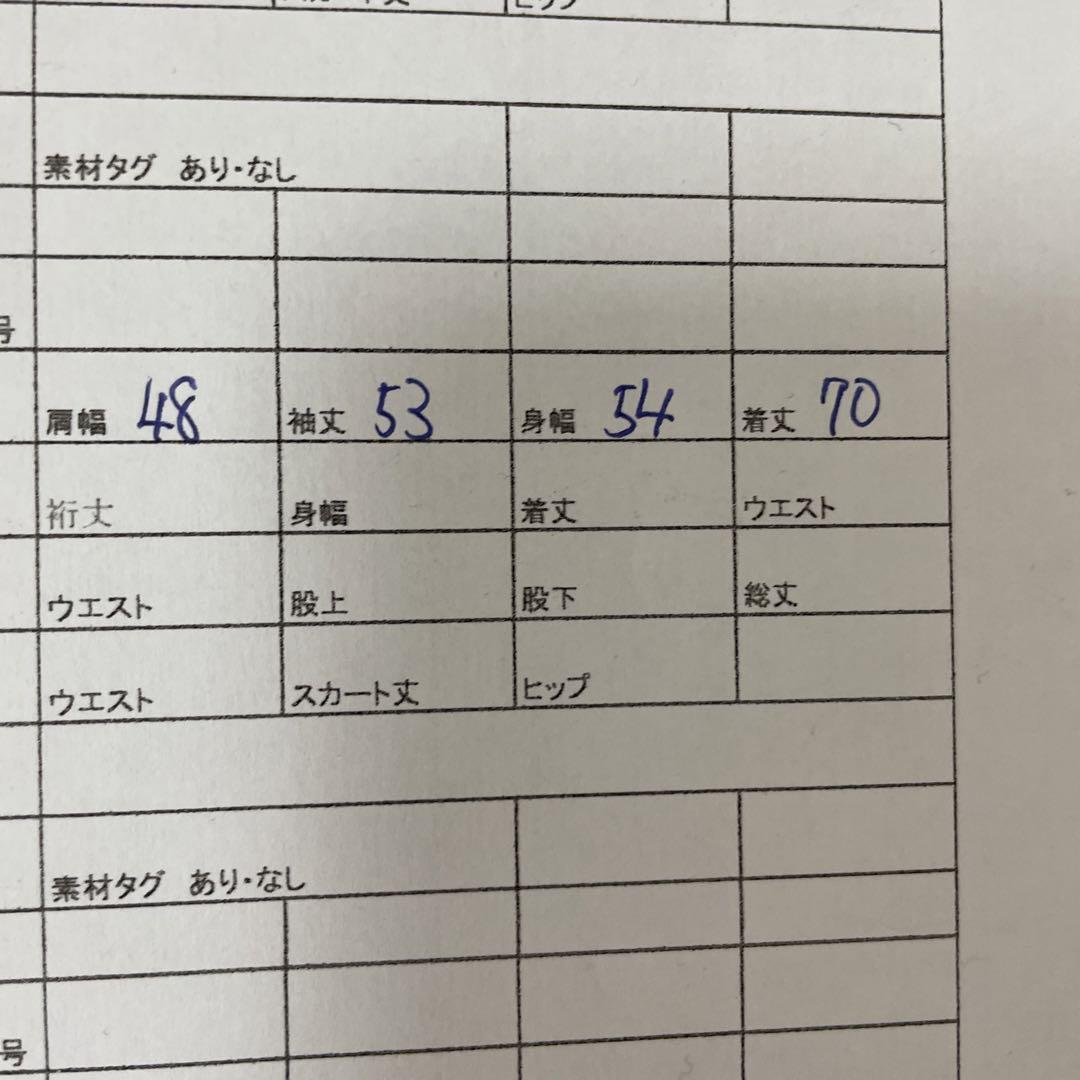 素材タグ あり・なし
号
肩幅 48 袖丈 53 身幅 54 着丈 70
裄丈 身幅 着丈 ウエスト
ウエスト 股上 股下 総丈
ウエスト スカート丈 ヒップ
素材タグ あり・なし
号